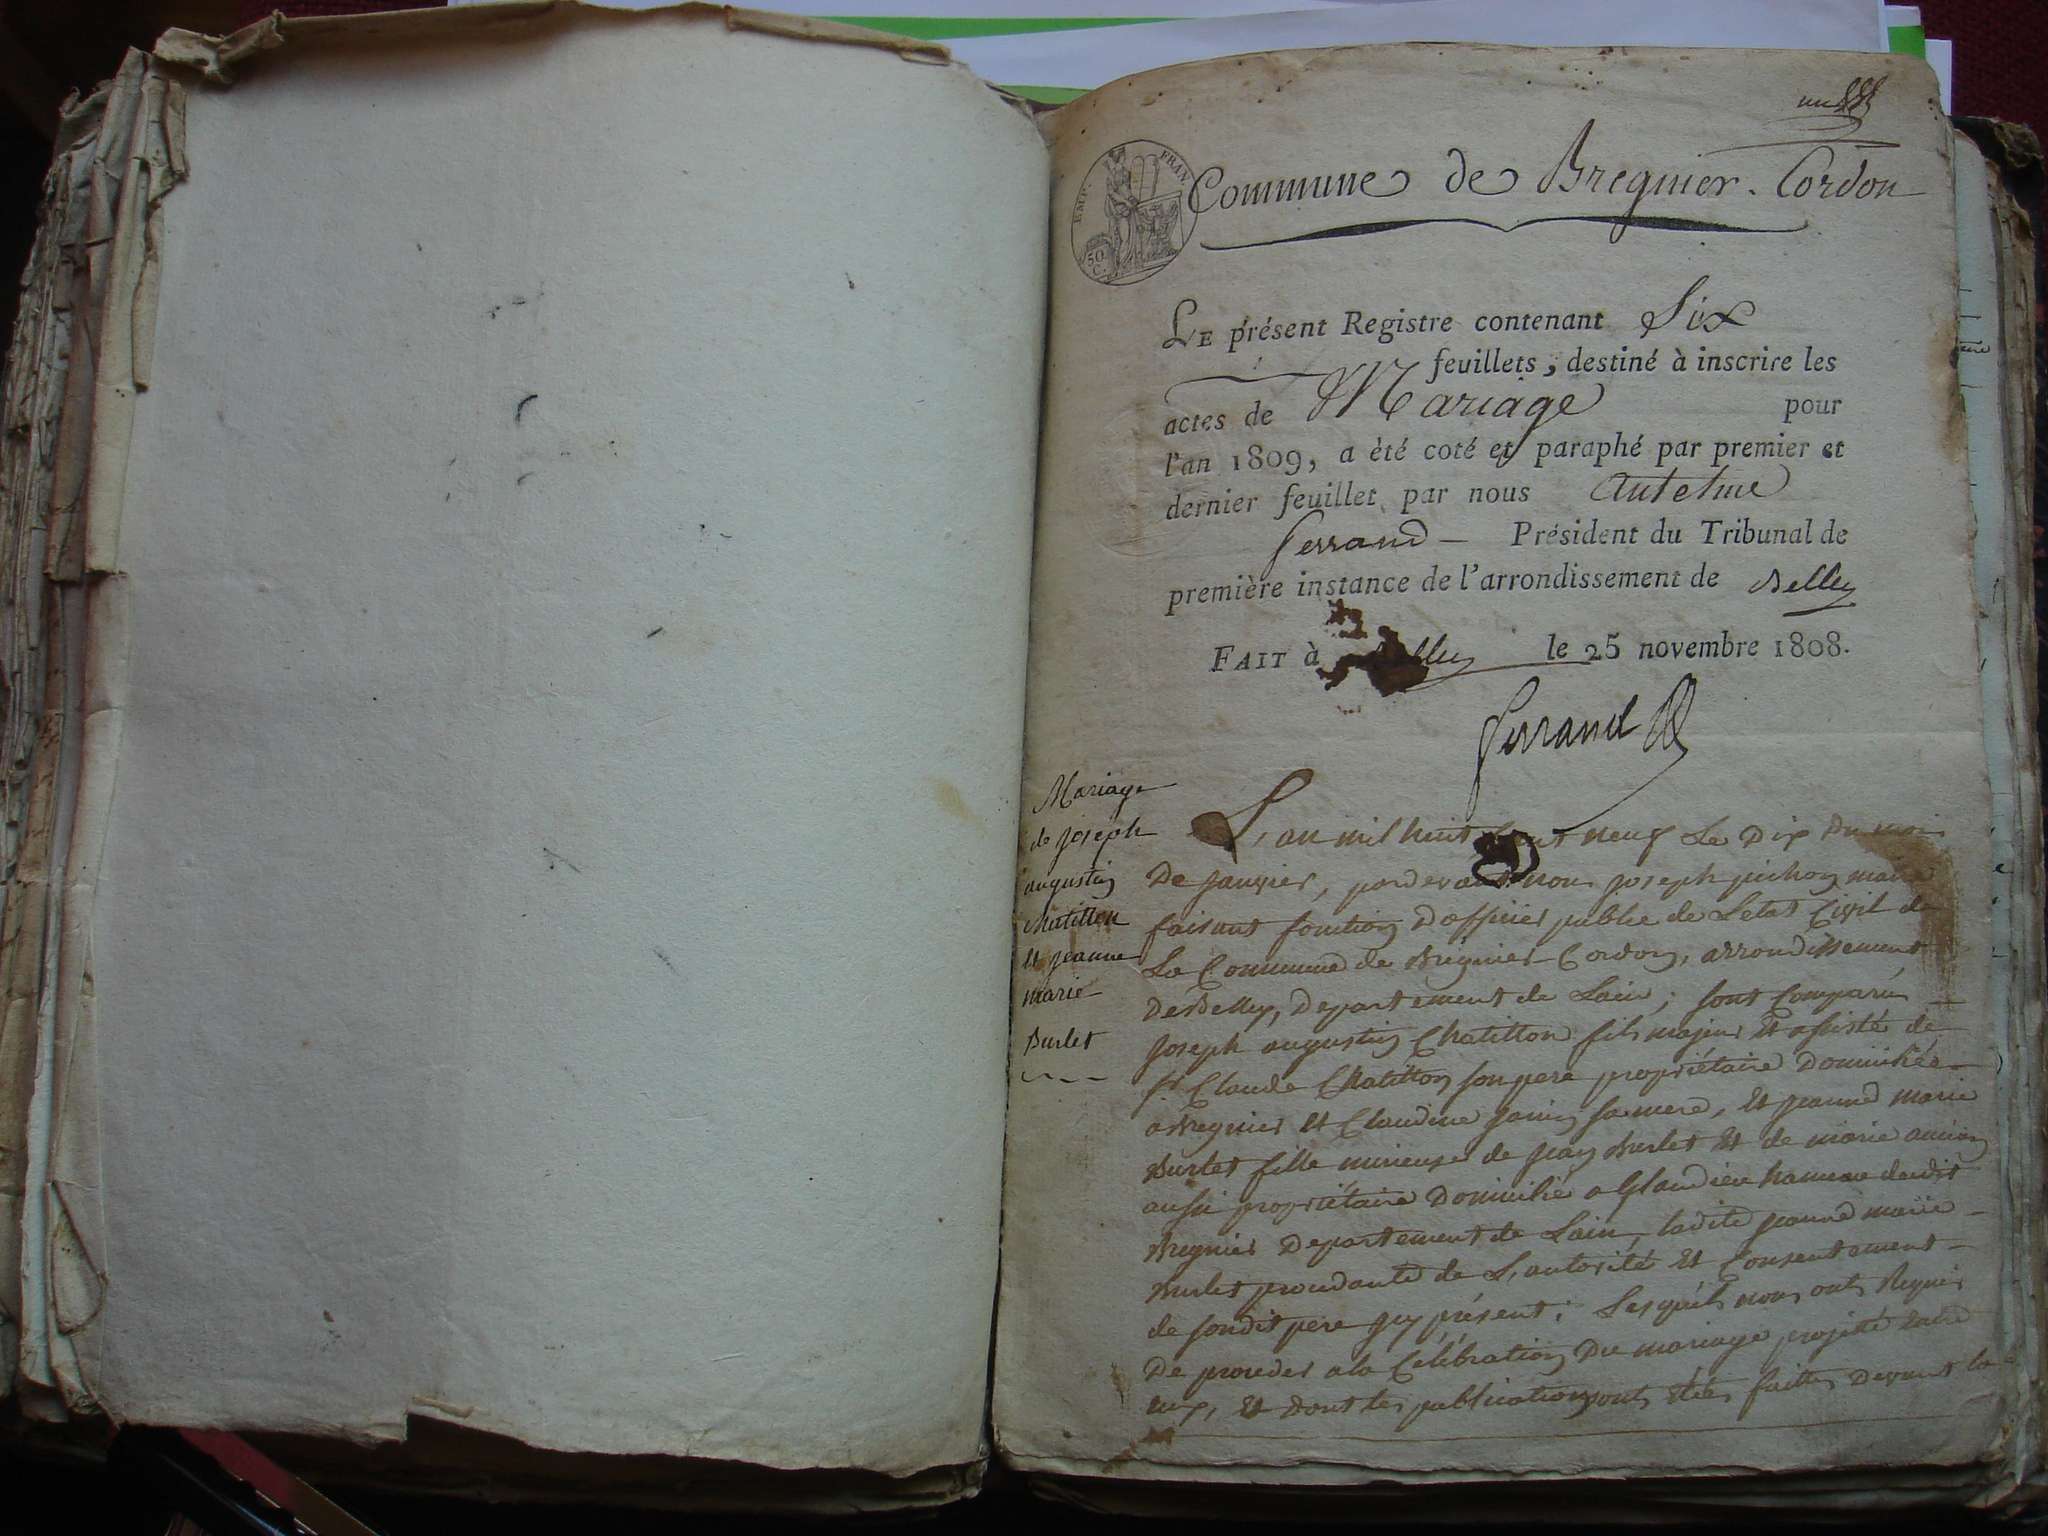 un
EMP. FRAN.
50 C.
Commune de Bregnier-Cordon
LE présent Registre contenant Six
feuillets, destiné à inscrire les
actes de Mariage pour
l'an 1809, a èté coté et paraphé par premier et
dernier feuillet par nous Antelme
ferrand — Président du Tribunal de
première instance de l'arrondissement de Belley
FAIT à Belley le 25 novembre 1808.
ferrand
Mariage
de joseph
augustin
Chatillon
Et jeanne
marie
Burlet
L'an mil huit Cent neuf Le Dix Du mois
De janvier, pardevant nous joseph pichon maire
faisant fonction D'officier public de Letat Civil de
La Commune de Brégnier-Cordon, arrondissement
De Belley, Departement de Lain; sont Comparus
joseph augustin Chatillon fils majeur Et assisté de
sr Claude Chatillon son pere propriétaire Domicilié
a Bregnier Et Claudine janin sa mere, Et jeanne marie
Burlet fille mineure de jean Burlet Et de marie
aussi propriétaire Domicilié a Glandieu hameau dudit
Bregnier Departement de Lain, ladite jeanne marie
Burlet procedante de L'autorité Et Consentement
de sondit pere icy présent; Lesquels nous ont Requis
De proceder a la Célébration Du mariage projetté entre
eux, Et dont les publications ont étées faittes Devant la